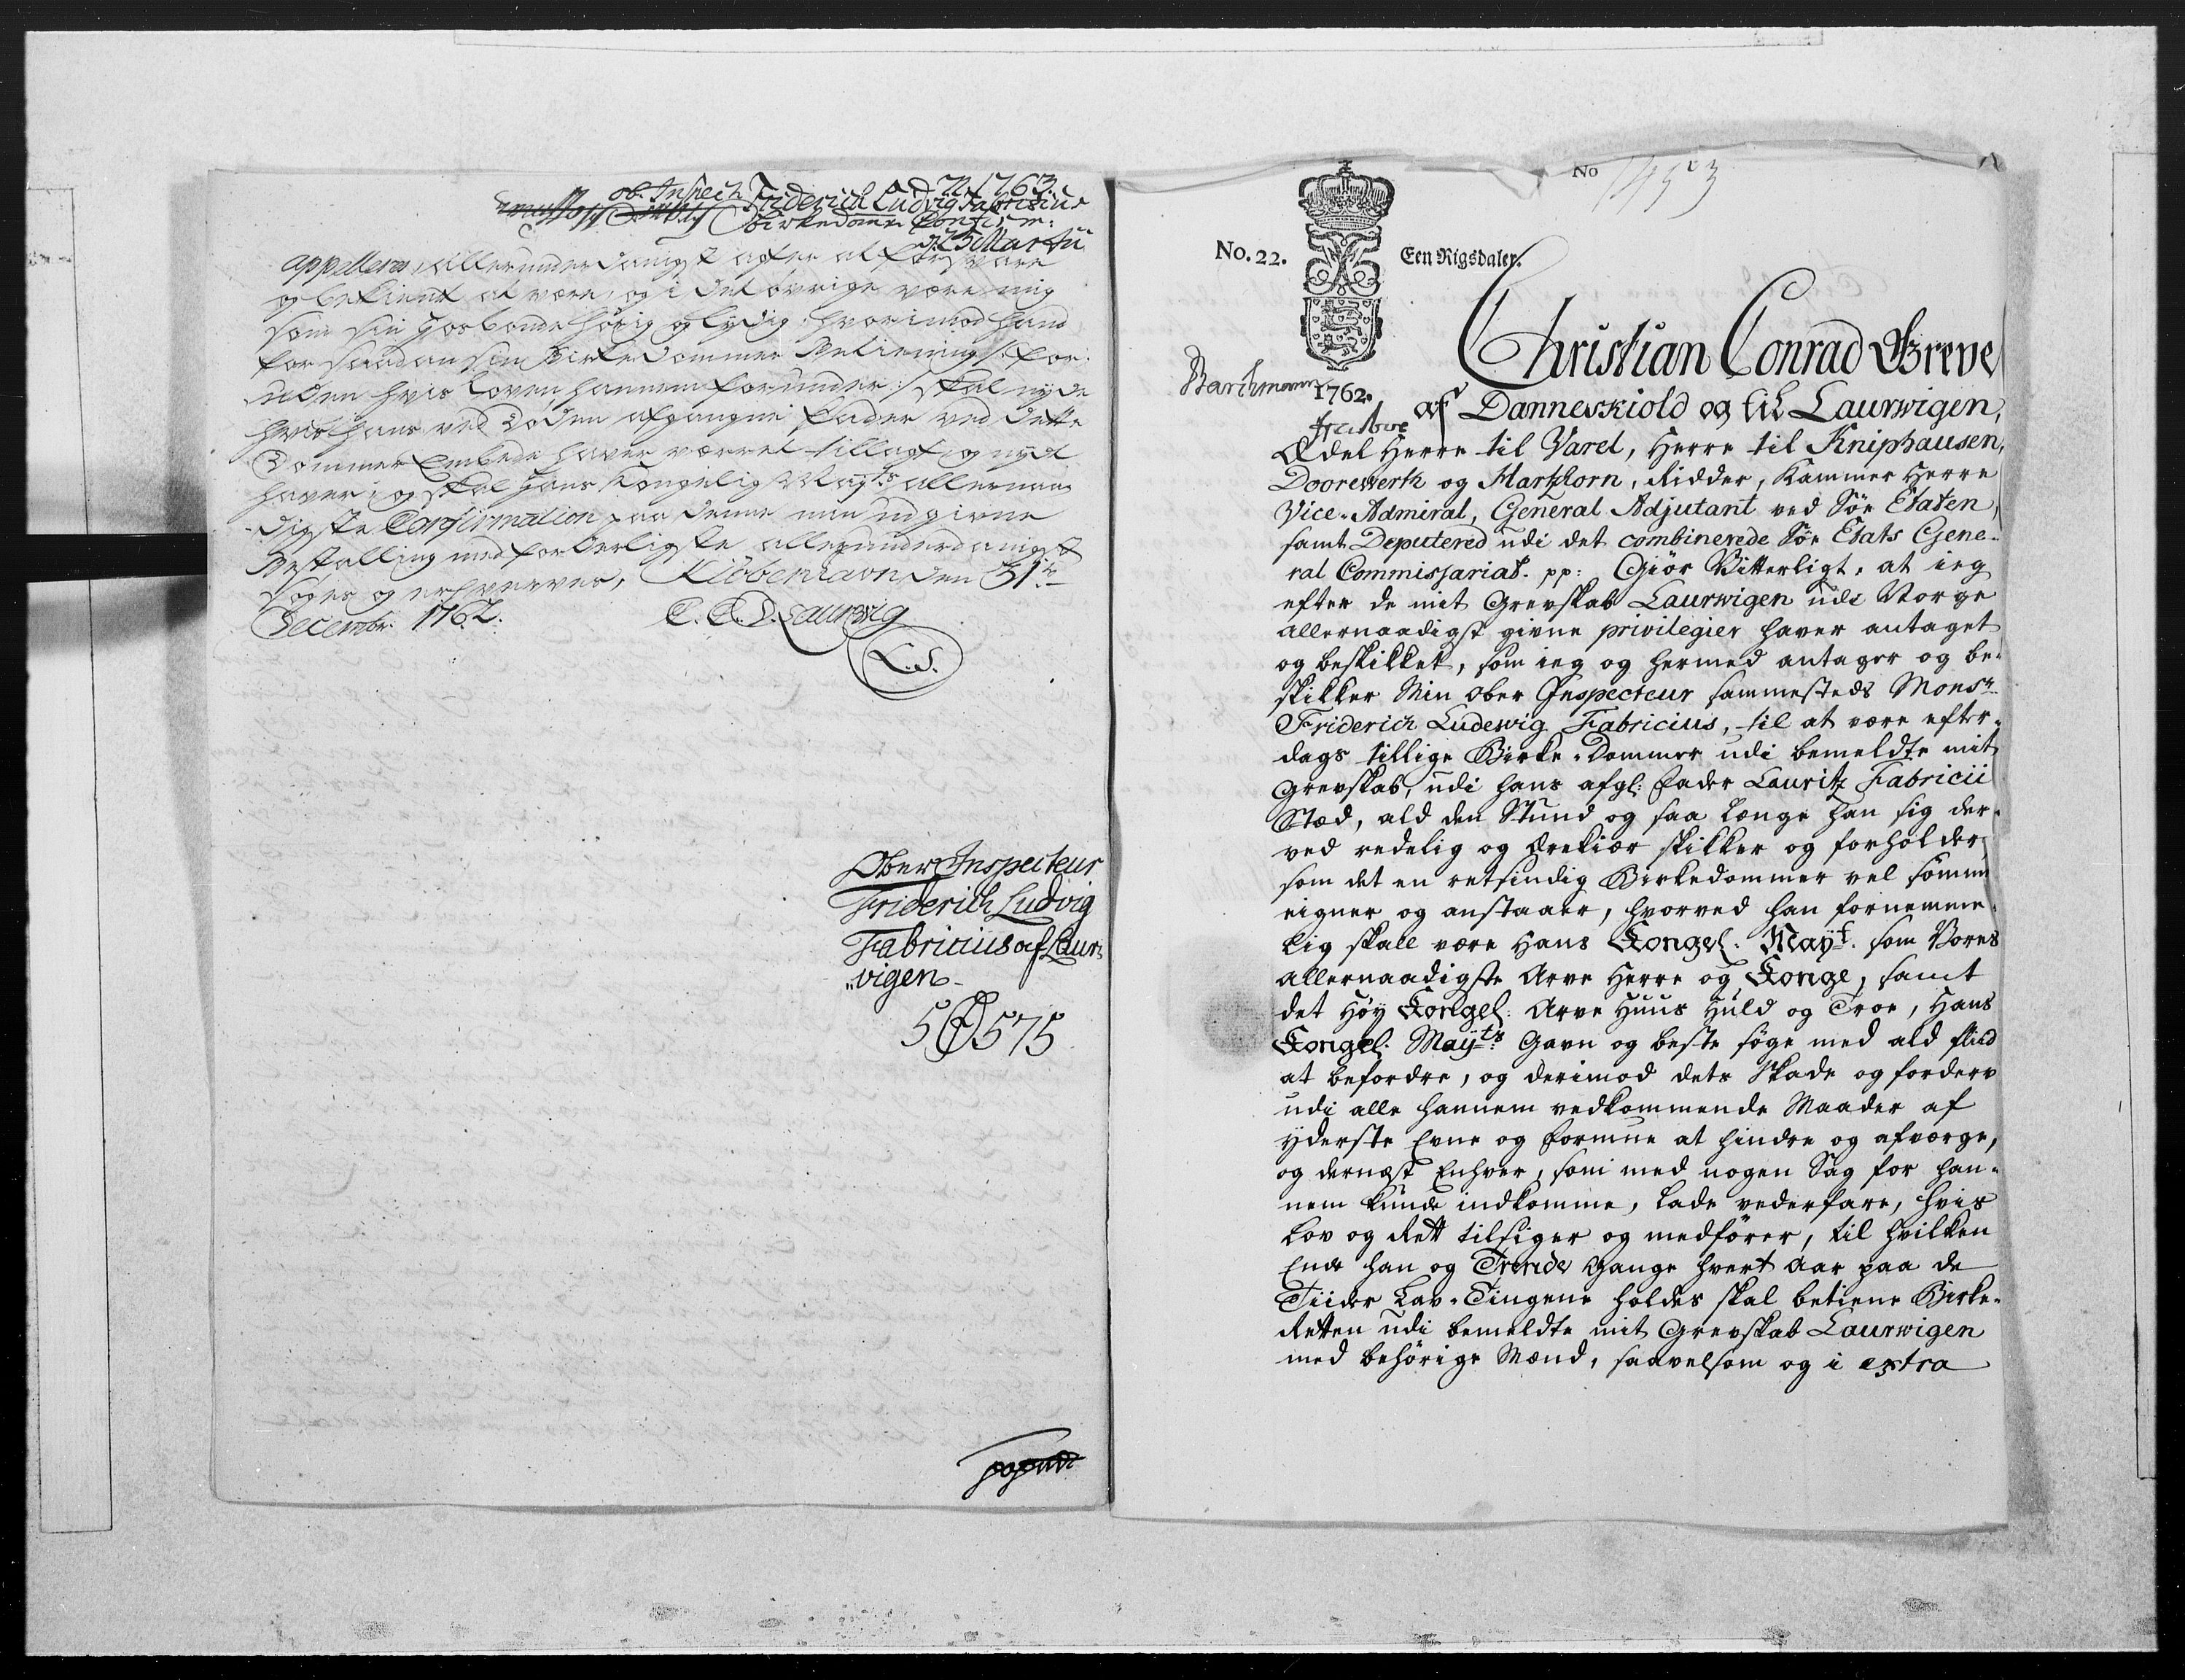 d. 1763.
ob. Inspect Friderich Ludvig Fabritius
Birkedom: Confirm:
d. 25 Martii
appelleres, allerunderdanigst agter at forsvare
og bekiendt at være, og i det øvrige være mig
som sin Hosbonde hørig og lydig, hvorimod hand
for saadan sin Birke Dommer Betienings for:
uden hvis Loven hannem forunder :/ skal nyde
hvis hans ved Døden afgangne Fader ved dette
Dommer Embede haver værret tillagt og nydt
haver, og skal Hans Kongelig Mayts allernaa
digste Confirmation paa denne min udgivne
Bestalling med forderligste allerunderdanigst
søges og erhverves, Kiöbenhavn den 31te
Decembr. 1762. C. C. D. Laurwig
L.S.
Ober Inspecteur
Friderich Ludvig
Fabritius af Laur„
„vigen
575
No 1453
No. 22. Een Rigsdaler.
Barchmann 1762.
Christian Conrad Greve
af Danneskiold og til Laurwigen,
Ædel Herre til Varel, Herre til Kniphausen,
Doorewerth og Martzhorn, Ridder, Kammer Herre
Vice-Admiral, General Adjutant ved Söe Etaten,
samt Deputered udi det combinerede Söe Etats Gene-
ral Commissariat. pp: Giör Vitterligt, at ieg
efter de mit Grevskab Laurwigen udi Norge
allernaadigst givne privilegier haver antaget
og beskikket, som ieg og hermed antager og be-
skikker Min Ober Inspecteur sammesteds Monsr.
Friderich Ludewig Fabricius, til at være efter-
dags tillige Birke-Dommer udi bemeldte mit
Grevskab, udi hans afgl: Fader Lauritz Fabricii
Stæd, ald den Stund og saa længe han sig der-
ved redelig og ærekiær skikker og forholder,
som det en retsindig Birkedommer vel sömmer
eigner og anstaaer, hvorved han fornemme-
lig skall være Hans Kongel. Mayt. som Vores
allernaadigste Arve Herre og Konge, samt
det Höy Kongel: Arve Huus Huld og Troe, Hans
Kongel. Mayts. Gavn og beste söge med ald flid
at befordre, og derimod dets Skade og forderv
udi alle hannem vedkommende Maader af
yderste Evne og Formue at hindre og afværge,
og dernæst Enhver, som med nogen Sag for han-
nem kunde indkomme, lade vederfare, hvis
Lov og Rett tilsiger og medförer, til hvilken
Ende han og Trende Gange hvert Aar paa de
Tiider Lav-Tingene holdes skal betiene Birke-
Retten udi bemeldte mit Grevskab Laurwigen
med behörige Mænd, saavelsom og i extra